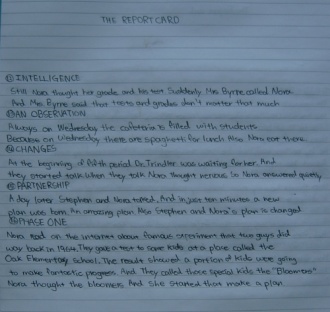 THE REPORT CARD
① INTELLIGENCE
Still Nora thought her grade and his test. Suddenly Mrs Byrne called Nora.
And Mrs Byrne said that tests and grades don't matter that much
AN OBSERVATION
Always on Wednesday the cafeteria is filled with students
Because on Wednesday there are spaghetti for lunch Also Nora eat there.
CHANGES
At the beginning of fifth period Dr. Trindler was waiting for her. And
they started talk When they talk Nora thought nervous So Nora answered quietly
PARTNERSHIP
A day later Stephen and Nora talked. And in just ten minutes a new
plan was born An amazing plan Now Stephen and Nora's plan is changed
PHASE ONE
Nora read on the internet about famous experiment that two guys did
way back in 1964. They gave a test to some kids at a place called the
Oak Elementary school. The result showed a portion of kids were going
to make fantastic progress And They called those special kids the "Bloomers"
Nora thought the bloomers And She started that make a plan